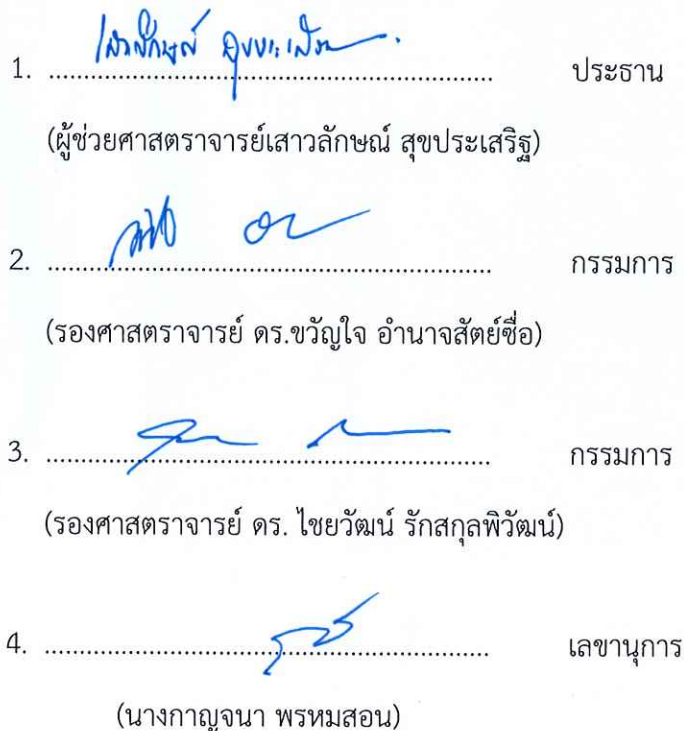 1. .......................................................... ประธาน
(ผู้ช่วยศาสตราจารย์เสาวลักษณ์ สุขประเสริฐ)
2. .......................................................... กรรมการ
(รองศาสตราจารย์ ดร.ขวัญใจ อำนาจสัตย์ซื่อ)
3. .......................................................... กรรมการ
(รองศาสตราจารย์ ดร. ไชยวัฒน์ รักสกุลพิวัฒน์)
4. .......................................................... เลขานุการ
(นางกาญจนา พรหมสอน)